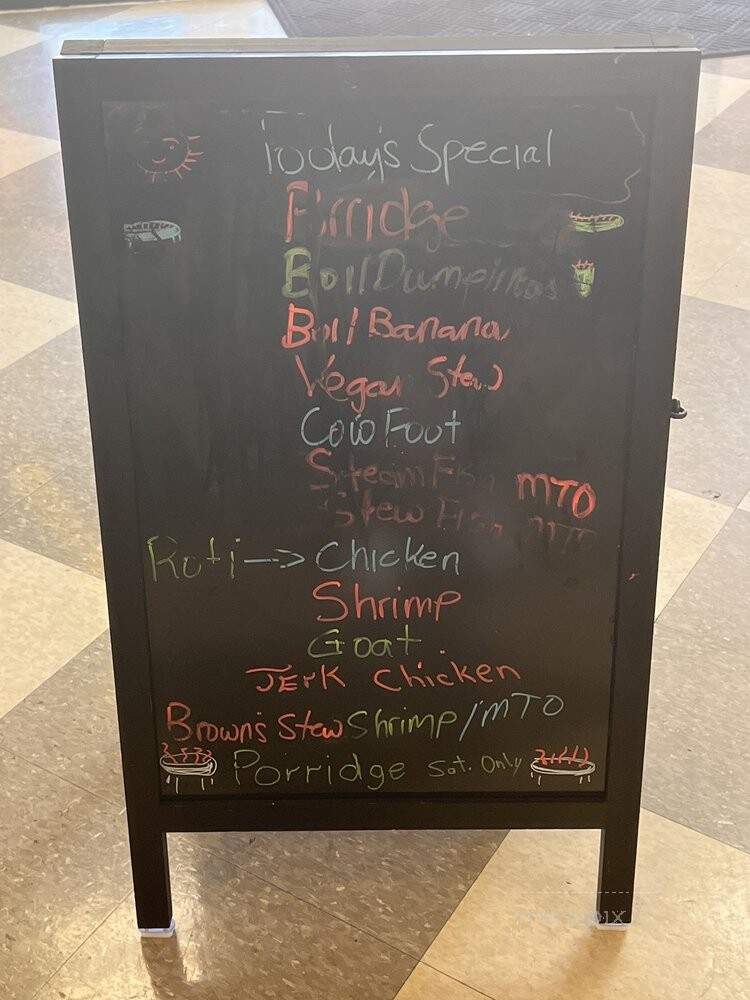 Today's Special
Porridge
Boil Dumplings
Boil Banana
Vegan Stew
Cow Foot
Steam Fish MTO
Stew Fish MTO
Roti --> Chicken
Shrimp
Goat
Jerk Chicken
Brown's Stew Shrimp/MTO
Porridge Sat. Only